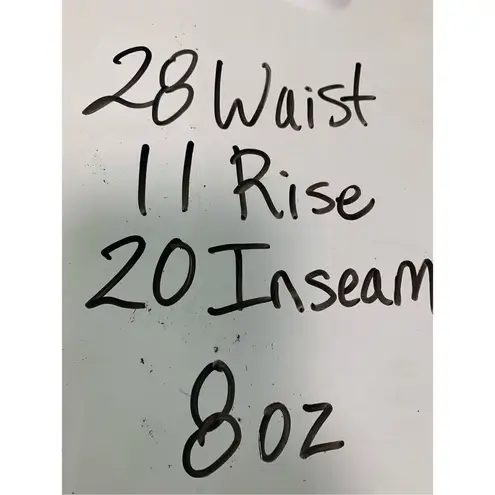 28 Waist
11 Rise
20 Inseam
8 oz